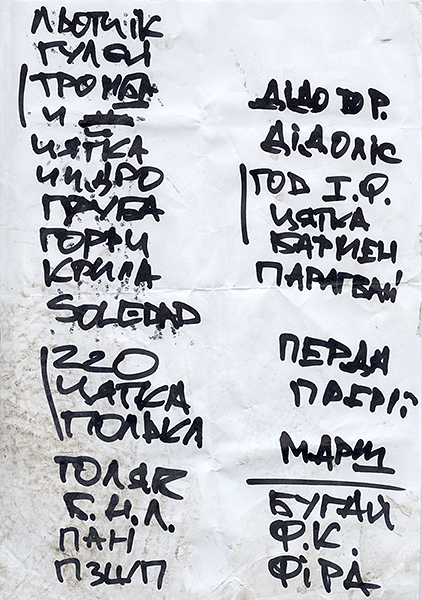 ЛЬОТЧІК
ГУЛЄЙ
ТРОМБА
И
ЦЯТКА
ЦИДРО
ГРУБА
ГОРРИ
КРИЛА
SOLEDAD
220
ЦАТКА
ПОЛЬКА
ТОЛЯК
Б.Н.Л.
ПАН
ПЗШП
ДІДО ЮР.
ДІДОЛІС
ГОД І.Ф.
ЦЯТКА
ВАРМЕН
ПАРАГВАЙ
ПЕРДА
ПРЕРІЇ
МАРШ
БУГАЙ
Ф.К.
ФІРА